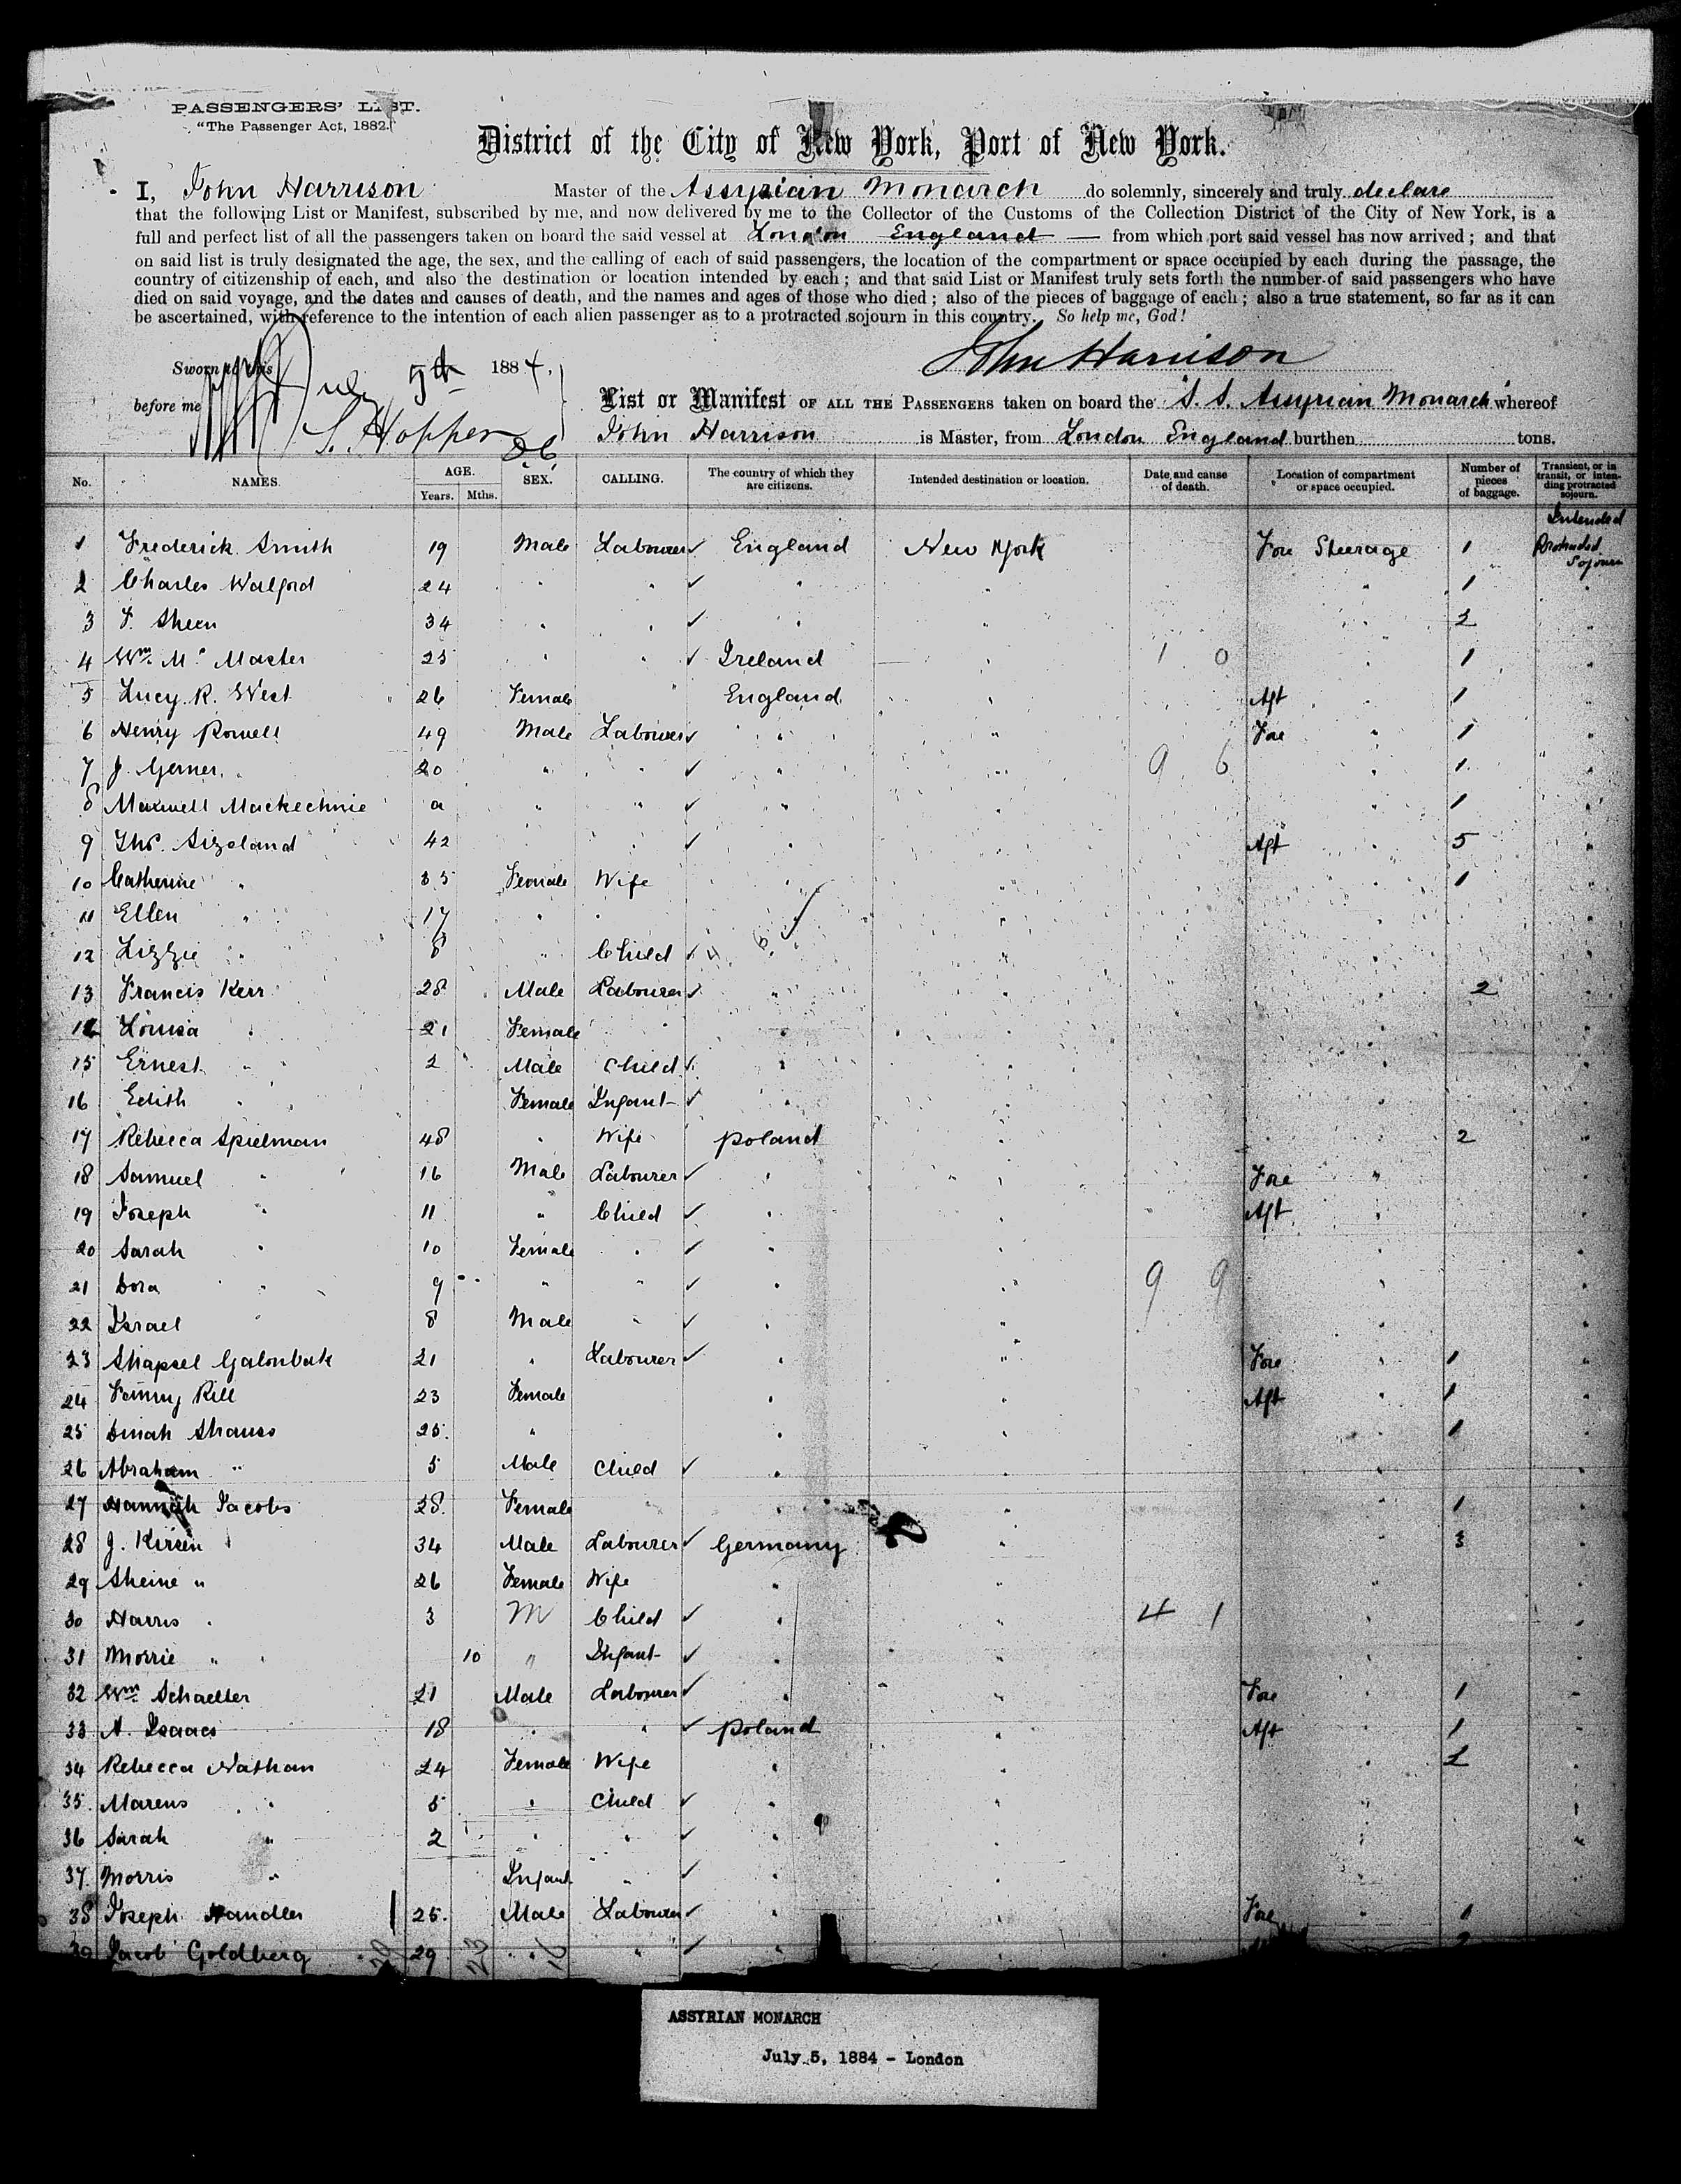 PASSENGERS' LIST.
"The Passenger Act, 1882."
District of the City of New York, Port of New York.
I, John Harrison Master of the Assyrian Monarch do solemnly, sincerely and truly declare
that the following List or Manifest, subscribed by me, and now delivered by me to the Collector of the Customs of the Collection District of the City of New York, is a
full and perfect list of all the passengers taken on board the said vessel at London England — from which port said vessel has now arrived; and that
on said list is truly designated the age, the sex, and the calling of each of said passengers, the location of the compartment or space occupied by each during the passage, the
country of citizenship of each, and also the destination or location intended by each; and that said List or Manifest truly sets forth the number of said passengers who have
died on said voyage, and the dates and causes of death, and the names and ages of those who died; also of the pieces of baggage of each; also a true statement, so far as it can
be ascertained, with reference to the intention of each alien passenger as to a protracted sojourn in this country. So help me, God!
John Harrison
Sworn to this July 5th 1884,
before me S. Hopper
List or Manifest OF ALL THE PASSENGERS taken on board the S. S. Assyrian Monarch whereof
John Harrison is Master, from London England burthen tons.
No. NAMES. AGE. Years. Mths. SEX. CALLING. The country of which they are citizens. Intended destination or location. Date and cause of death. Location of compartment or space occupied. Number of pieces of baggage. Transient, or in transit, or intending protracted sojourn.
Intended
1 Frederick Smith 19 Male Labourer ✓ England New York Fore Steerage 1 Protracted Sojourn
2 Charles Walford 24 " " ✓ " " " 1 "
3 F. Sheen 34 " " ✓ " " " 2 "
4 Wm. Mc Master 25 " " ✓ Ireland " 1 0 " 1 "
5 Lucy. R. West 26 Female " England " Aft " 1 "
6 Henry Powell 49 Male Labourer ✓ " " Fore " 1 "
7 J. Gerner 20 " " ✓ " " 9 6 " 1 "
8 Maxwell Mackechnie a " " ✓ " " " 1 "
9 Thos. Sizeland 42 " " ✓ " " Aft " 5 "
10 Catherine " 35 Female Wife " " " 1 "
11 Ellen " 17 " " " " " "
12 Lizzie " 8 " Child ✓ " " " "
13 Francis Kerr 28 Male Labourer ✓ " " " 2 "
14 Louisa " 21 Female " " " " "
15 Ernest " 2 Male Child ✓ " " " "
16 Edith " Female Infant ✓ " " " "
17 Rebecca Spielman 48 " Wife Poland " " 2 "
18 Samuel " 16 Male Labourer ✓ " " Fore " "
19 Joseph " 11 " Child ✓ " " Aft " "
20 Sarah " 10 Female " ✓ " " " "
21 Dora " 9 " " ✓ " " 9 9 " "
22 Israel " 8 Male " ✓ " " " "
23 Shapsel Galonbak 21 " Labourer ✓ " " Fore " 1 "
24 Fanny Rill 23 Female " " Aft " 1 "
25 Dinah Strauss 25 " " " " 1 "
26 Abraham " 5 Male Child ✓ " " " "
27 Hannah Jacobs 28 Female " " " 1 "
28 J. Kirsen 34 Male Labourer ✓ Germany " " 3 "
29 Sheine " 26 Female Wife " " " "
30 Harris " 3 M Child ✓ " " 4 1 " "
31 Morrie " 10 " Infant ✓ " " " "
32 Wm Schaeller 21 Male Labourer ✓ " " Fore " 1 "
33 A. Isaacs 18 " " ✓ Poland " Aft " 1 "
34 Rebecca Nathan 24 Female Wife " " " 2 "
35 Marcus " 5 " Child ✓ " " " "
36 Sarah " 2 " " ✓ " " " "
37 Morris " Infant " ✓ " " " "
38 Joseph Handler 25 Male Labourer ✓ " " Fore " 1 "
39 Jacob Goldberg 29 " " ✓ "
ASSYRIAN MONARCH
July 5, 1884 - London